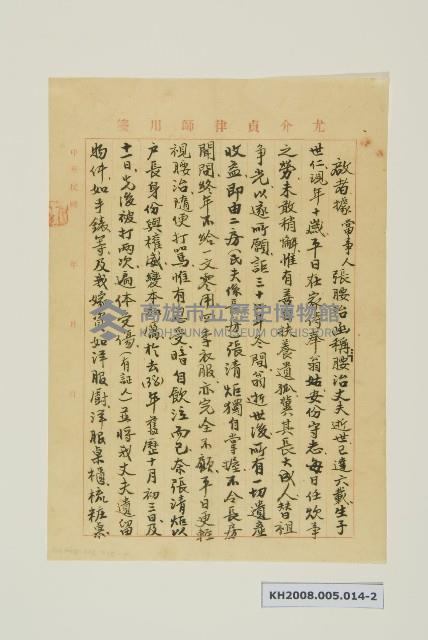 尤介貞律師用箋
敬者據當事人張腰治函稱腰治丈夫逝世已達六載生子
世仁現年十歲平日在家侍奉翁姑安份守志每日任炊事
之勞未敢稍懈惟有善扶養遺孤冀其長大成人替祖
爭光以遂所願詎三十年冬間翁逝世後所有一切遺產
收益即由二房(民夫係長房)張清炬獨自掌握不令長房
聞問終年不給一文零用四季衣服亦完全不顧平日更輕
視腰治隨便打罵惟有忍受暗自飲泣而已奈張清炬以
戶長身份與權威變本加厲於去38年舊歷十月初三日及
十一日先後被打兩次遍体受傷(有証人)並將我丈夫遺留
物件如手錶等及我嫁妝如洋服廚洋服桌櫃梳粧桌
中華民國 年 月 日
高雄市立歷史博物館
KAOHSIUNG MUSEUM OF HISTORY
KH2008.005.014-2